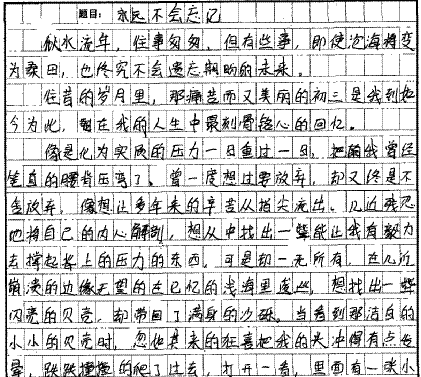 题目：永远不会忘记
似水流年，往事匆匆。但有些事，即使沧海将变
为桑田，也终究不会遗忘期盼的未来。
往昔的岁月里，那痛苦而又美丽的初三是我到如
今为止，刻在我的人生中最刻骨铭心的回忆。
像是化为实质的压力一日重过一日，把的我曾经
笔直的腰背压弯了。曾一度想过要放弃，却又终是不
舍放弃，像想让多年来的辛苦从指尖流出。几近残忍
地将自己的内心解剖，想从中找出一些能让我有毅力
去撑起肩上的压力的东西，可是却一无所有，在几近
崩溃的边缘无望的在记忆的浅海里废丝，想找出一些
闪亮的贝壳，却带回了满身的沙砾。当看到那洁白的
小小的贝壳时，忽他其来的狂喜把我的头冲得有点发
晕，跌跌撞撞的爬了过去，打开一看，里面有一张小